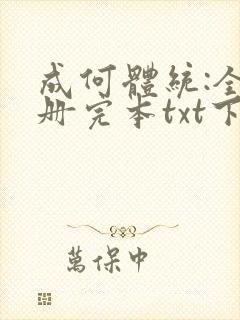 成何體統:全
册完本txt下
萬保中